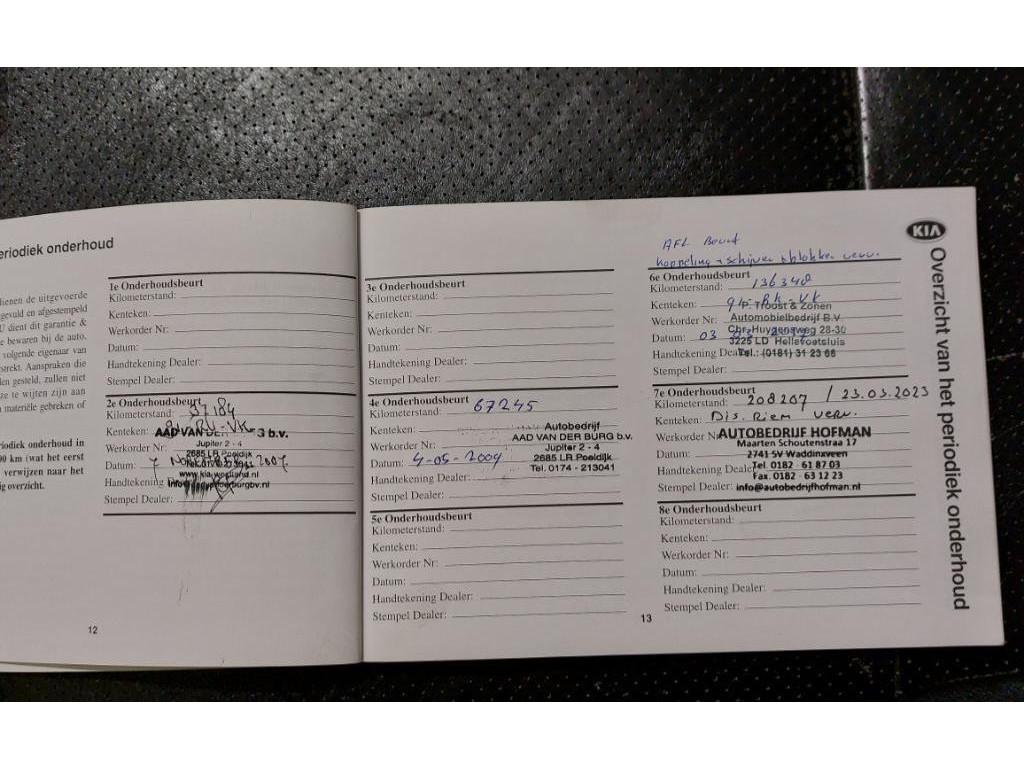 eriodiek onderhoud
dienen de uitgevoerde
gevuld en afgestempeld
U dient dit garantie &
e bewaren bij de auto.
volgende eigenaar van
strekt. Aanspraken die
len gesteld, zullen niet
ze te wijten zijn aan
n materiële gebreken of
riodiek onderhoud in
00 km (wat het eerst
verwijzen naar het
ig overzicht.
12
1e Onderhoudsbeurt
Kilometerstand:
Kenteken:
Werkorder Nr:
Datum:
Handtekening Dealer:
Stempel Dealer:
2e Onderhoudsbeurt
Kilometerstand: 37184
Kenteken:
AAD VAN DE 3 b.v.
Werkorder Nr: Jupiter 2 - 4
2685 LR Poeldijk
Datum: 7 November 2007
Handtekening
www.kia-westland.nl
Stempel Dealer:
3e Onderhoudsbeurt
Kilometerstand:
Kenteken:
Werkorder Nr:
Datum:
Handtekening Dealer:
Stempel Dealer:
4e Onderhoudsbeurt
Kilometerstand: 67245
Kenteken: Autobedrijf
AAD VAN DER BURG b.v.
Werkorder Nr: Jupiter 2 - 4
Datum: 4-05-2009 2685 LR Poeldijk
Tel. 0174 - 213041
Handtekening Dealer:
Stempel Dealer:
5e Onderhoudsbeurt
Kilometerstand:
Kenteken:
Werkorder Nr:
Datum:
Handtekening Dealer:
Stempel Dealer:
13
AFL Beurt
koppeling + schijven + blokken verv.
6e Onderhoudsbeurt
Kilometerstand: 136340
Kenteken: 91-RK-VK
P. Troost & Zonen
Werkorder Nr: Automobielbedrijf B.V.
Chr. Huygensweg 28-30
Datum: 03 03
3225 LD Hellevoetsluis
Handtekening Dealer: Tel.: (0181) 31 23 66
Stempel Dealer:
7e Onderhoudsbeurt
Kilometerstand: 208207 / 23.03.2023
Kenteken: Dis. Riem verv.
Werkorder Nr: AUTOBEDRIJF HOFMAN
Maarten Schoutenstraat 17
Datum: 2741 SV Waddinxveen
Handtekening Tel. 0182 - 61 87 03
Fax. 0182 - 63 12 23
Stempel Dealer: info@autobedrijfhofman.nl
8e Onderhoudsbeurt
Kilometerstand:
Kenteken:
Werkorder Nr:
Datum:
Handtekening Dealer:
Stempel Dealer:
KIA
Overzicht van het periodiek onderhoud